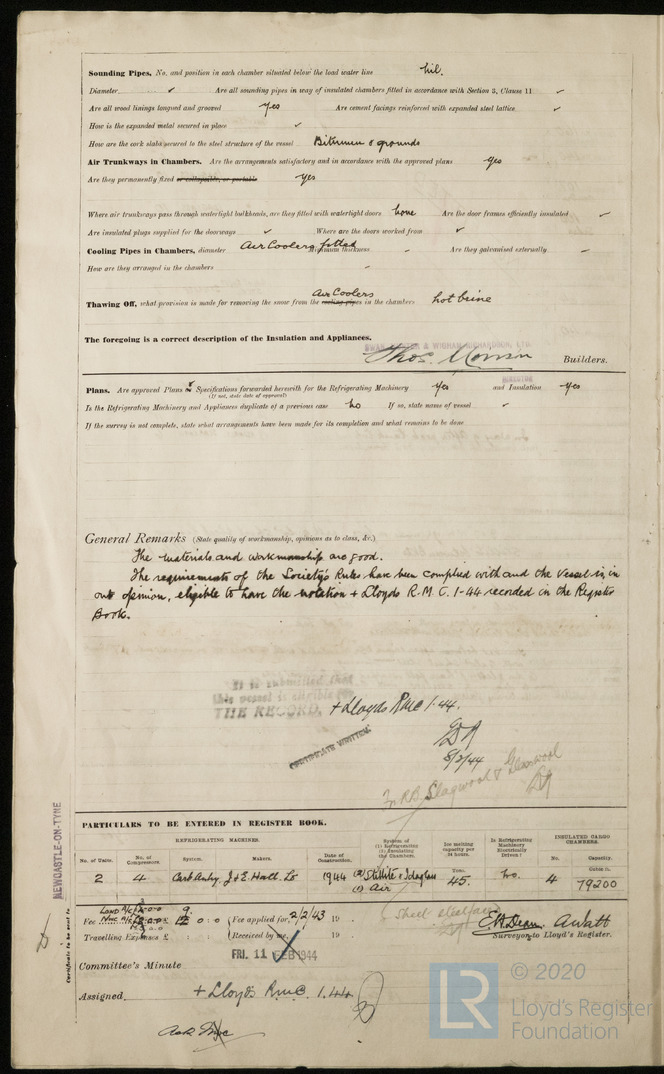 Sounding Pipes, No. and position in each chamber situated below the load water line nil.
Diameter ✓ Are all sounding pipes in way of insulated chambers fitted in accordance with Section 3, Clause 11 ✓
Are all wood linings tongued and grooved yes Are cement facings reinforced with expanded steel lattice ✓
How is the expanded metal secured in place ✓
How are the cork slabs secured to the steel structure of the vessel Bitumen & grounds
Air Trunkways in Chambers. Are the arrangements satisfactory and in accordance with the approved plans yes
Are they permanently fixed or collapsible, or portable yes
Where air trunkways pass through watertight bulkheads, are they fitted with watertight doors none Are the door frames efficiently insulated ✓
Are insulated plugs supplied for the doorways ✓ Where are the doors worked from ✓
Cooling Pipes in Chambers, diameter Air Coolers fitted Minimum thickness – Are they galvanised externally –
How are they arranged in the chambers –
Air Coolers
Thawing Off, what provision is made for removing the snow from the cooling pipes in the chambers hot brine
The foregoing is a correct description of the Insulation and Appliances.
SWAN, HUNTER & WIGHAM RICHARDSON, LTD.
Thos. Morison Builders.
DIRECTOR
Plans. Are approved Plans & Specifications forwarded herewith for the Refrigerating Machinery Yes and Insulation Yes
(If not, state date of approval)
Is the Refrigerating Machinery and Appliances duplicate of a previous case No If so, state name of vessel ✓
If the survey is not complete, state what arrangements have been made for its completion and what remains to be done
General Remarks (State quality of workmanship, opinions as to class, &c.)
The materials and workmanship are good.
The requirements of the Society's Rules have been complied with and the vessel is, in
our opinion, eligible to have the notation + Lloyds R.M.C. 1-44 recorded in the Register
Book.
It is submitted that
this vessel is eligible for
THE RECORD. + Lloyds RMC 1.44.
CERTIFICATE WRITTEN.
8/2/44
In RB Slagwool & Glasswool
NEWCASTLE-ON-TYNE
Certificate to be sent to
PARTICULARS TO BE ENTERED IN REGISTER BOOK.
REFRIGERATING MACHINES. System of (1) Refrigerating (2) Insulating the Chambers. Ice melting capacity per 24 hours. Is Refrigerating Machinery Electrically Driven? INSULATED CARGO CHAMBERS.
No. of Units. No. of Compressors. System. Makers. Date of Construction. No. Capacity.
Tons. Cubic ft.
2 4 Carb Anhy. J & E Hall Ld 1944 (2) Stillite & Idaglass 45. No. 4 79200
(1) Air
Fee £ 12 : 0 : 0 Fee applied for, 2/2/43 19
Travelling Expenses £ : : Received by me, 19
A Watt
Surveyor to Lloyd's Register.
FRI. 11 FEB 1944
Committee's Minute
Assigned + Lloyds RMC 1.44
© 2020
LR Lloyd's Register
Foundation